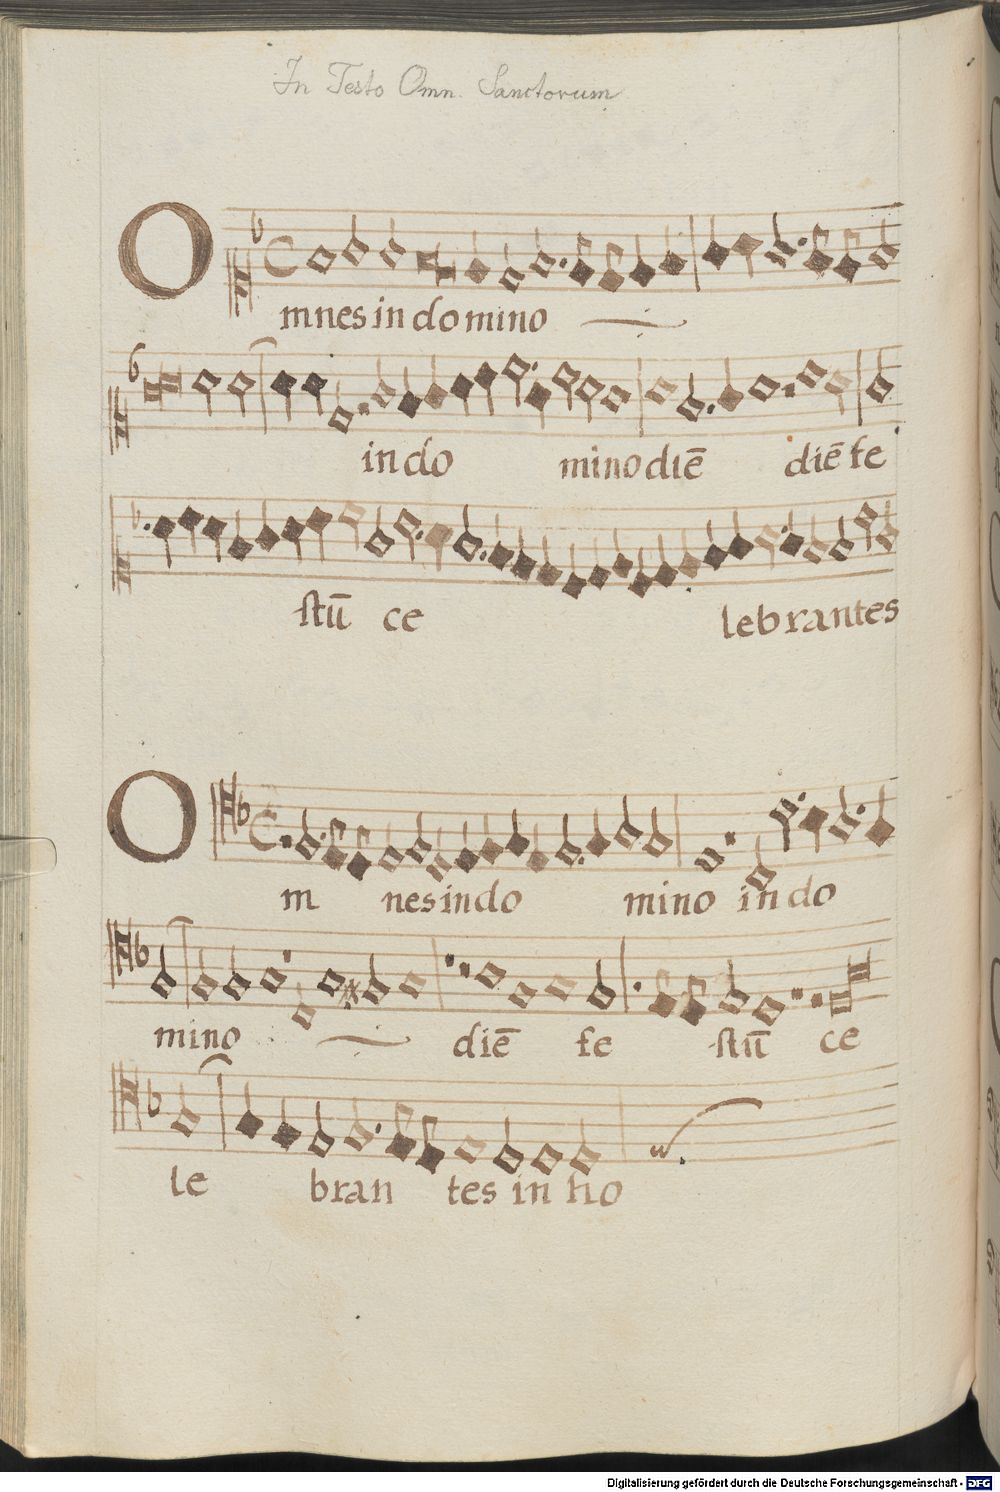 In Festo Omn. Sanctorum
O
mnes in do mino
in do mino diē diē fe
stū ce lebrantes
O
m nes in do mino in do
mino diē fe stū ce
le bran tes in ho
Digitalisierung gefördert durch die Deutsche Forschungsgemeinschaft - DFG